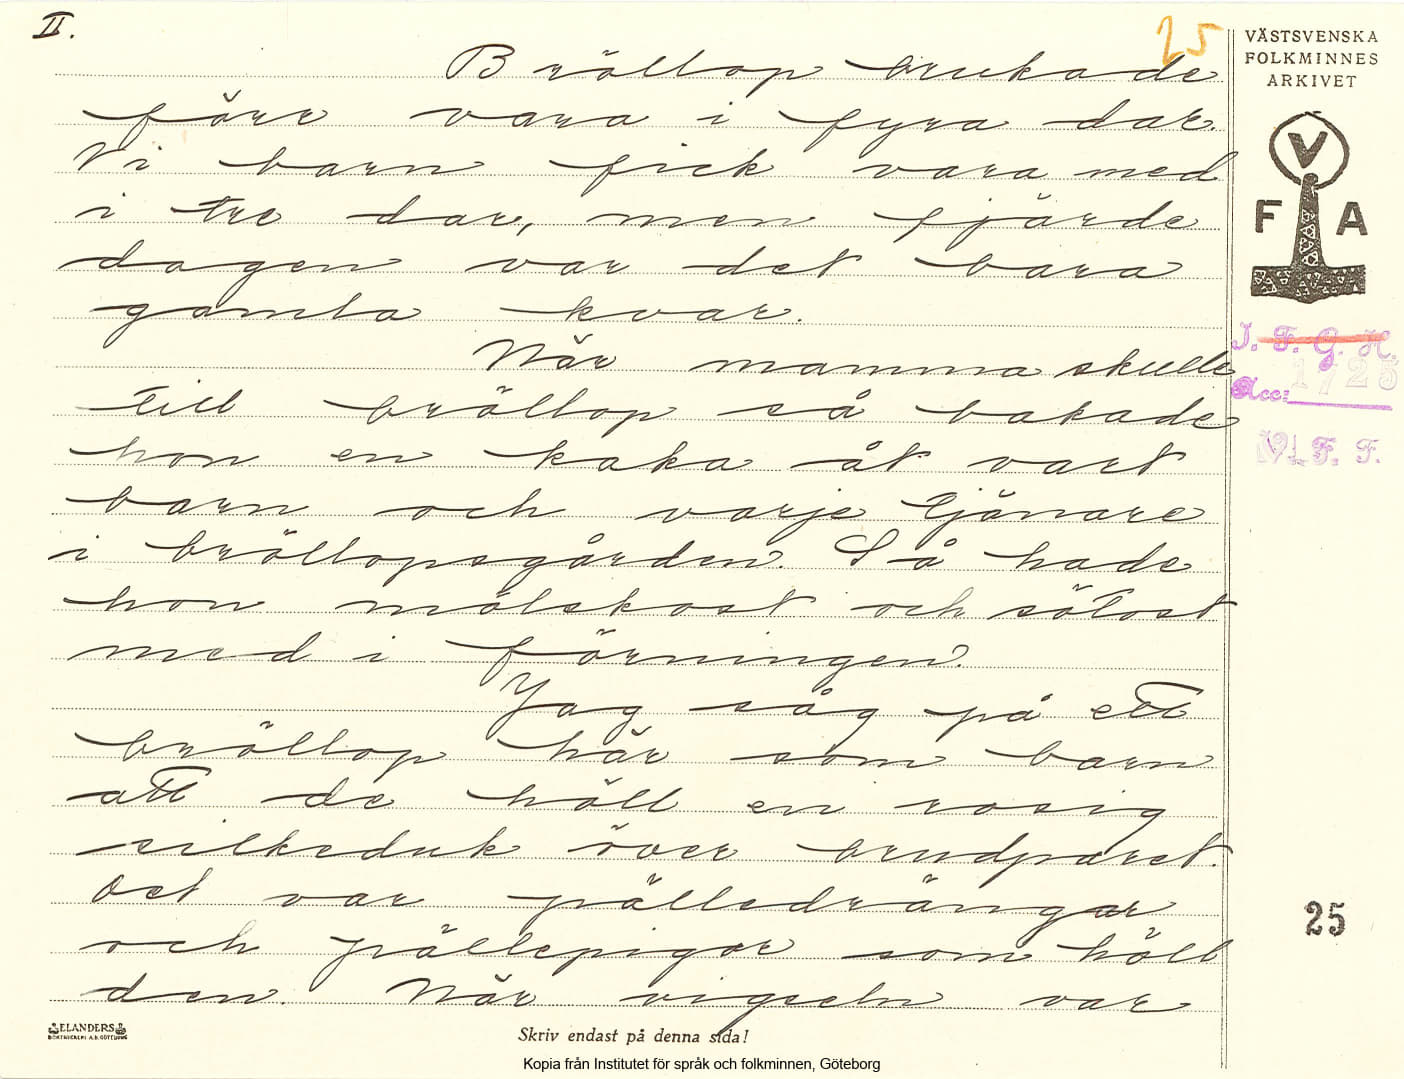 II.
25
VÄSTSVENSKA
FOLKMINNES
ARKIVET
V
F A
Bröllop brukade
förr vara i fyra dar.
Vi barn fick vara med
i tre dar, men fjärde
dagen var det bara
gamla kvar.
När mamma skulle
till bröllop så bakade
hon en kaka åt vart
barn och varje tjänare
i bröllopsgården. Så hade
hon mölskost och sötost
med i förningen.
Jag såg på ett
bröllop här som barn
att de höll en rosig
silkeduk över brudparet.
Det var pälledrängar
och pällepigor som höll
den. När vigseln var
I. F. G. H.
Acc: 1725
V. F. F.
25
ELANDERS
BOKTRYCKERI A.B. GÖTEBORG
Skriv endast på denna sida!
Kopia från Institutet för språk och folkminnen, Göteborg